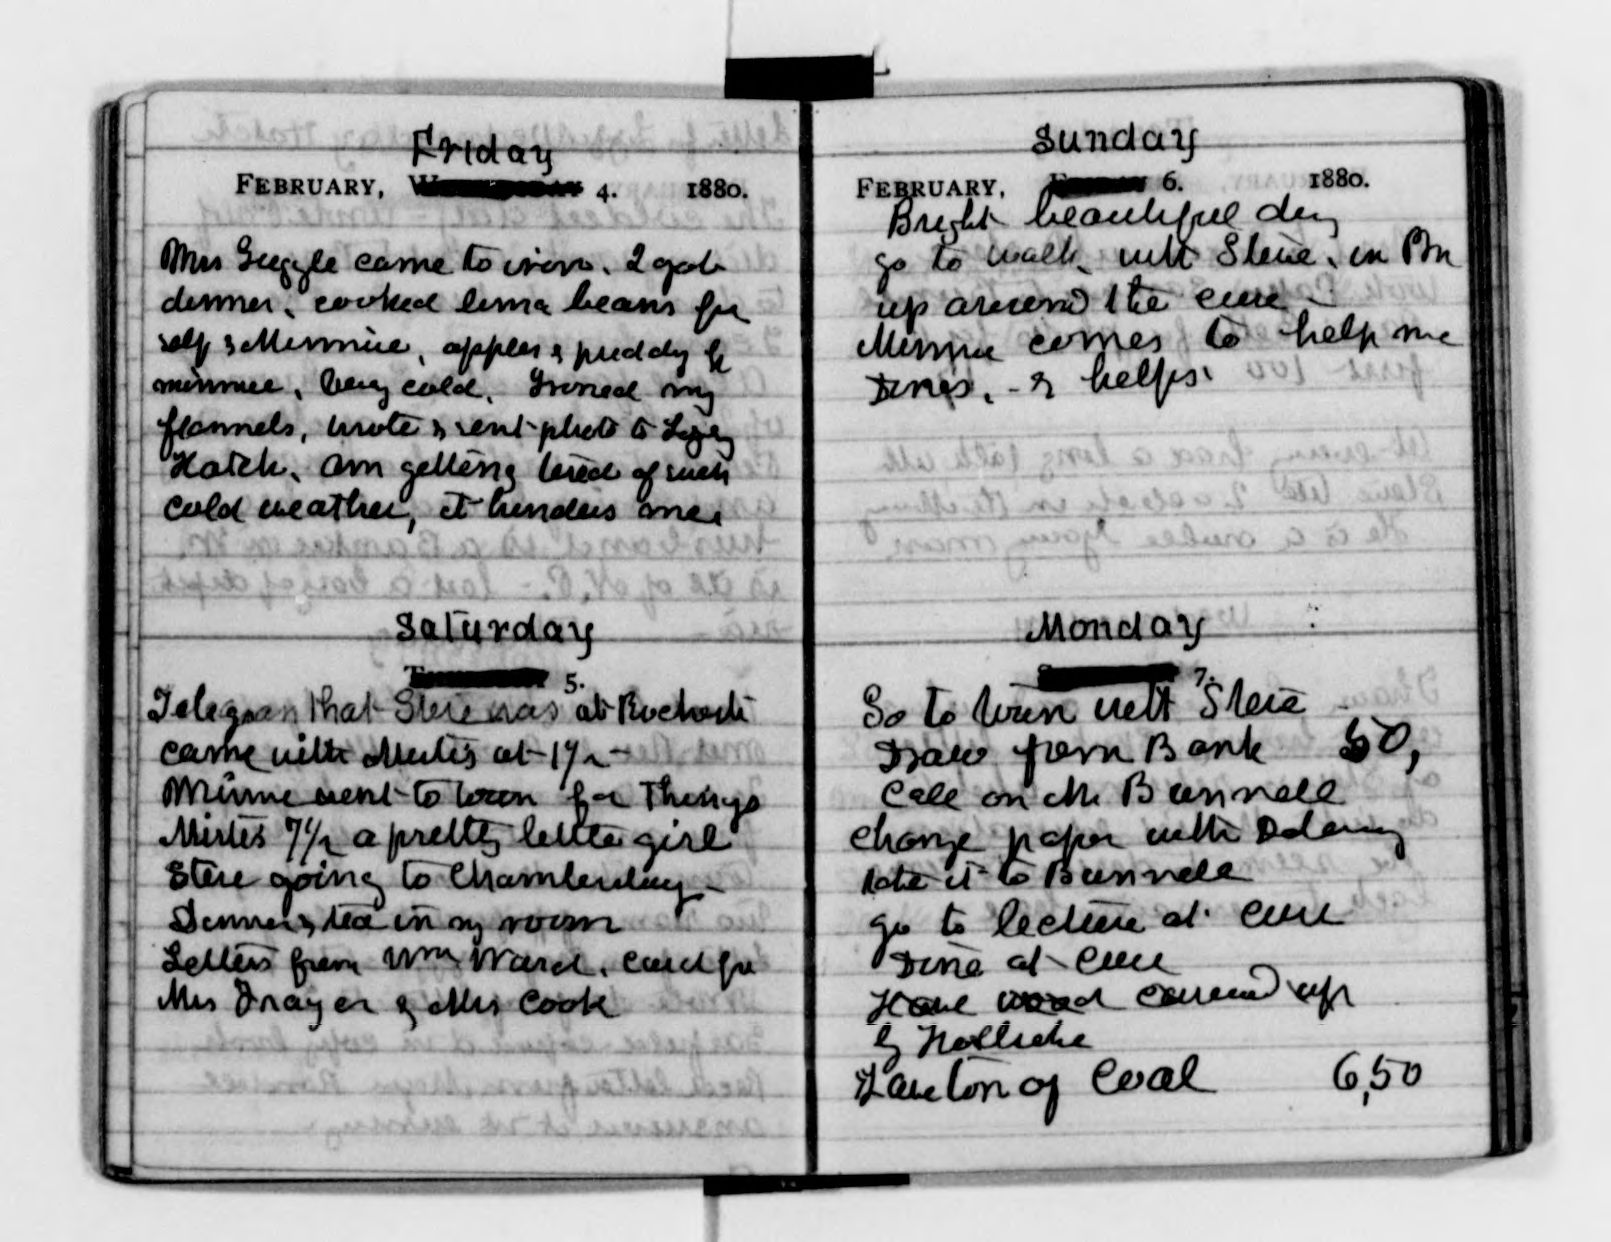 Friday
FEBRUARY, 4. 1880.
Mrs Guggle came to iron. I got
dinner, cooked lima beans for
self & Minnie, apples & puddg
minnie, very cold. Ironed my
flannels, wrote & sent photo to Lizzy
Hatch. Am getting tired of such
cold weather, it hinders me.
Saturday
5.
Telegram that Steve was at Rochester
came with Mirtis at 1 1/2 -
Minnie went to town for Things
Mirtis 7 1/2 a pretty little girl
Steve going to Chamberlay -
Dinner & tea in my room
Letters from Wm Ward. card for
Mrs Drayer & Mrs Cook
Sunday
FEBRUARY, 6. 1880.
Bright beautiful day
go to walk with Steve. in Pm
up around the cure -
Minnie comes to help me
Dines. - & helps.
Monday
7.
Go to town with Steve
Draw from Bank 50,
Call on Mr Bunnell
change paper with
take it to Bunnell
go to lecture at cure
Dine at Cure
Have wood carried up
by
ton of Coal 6,50